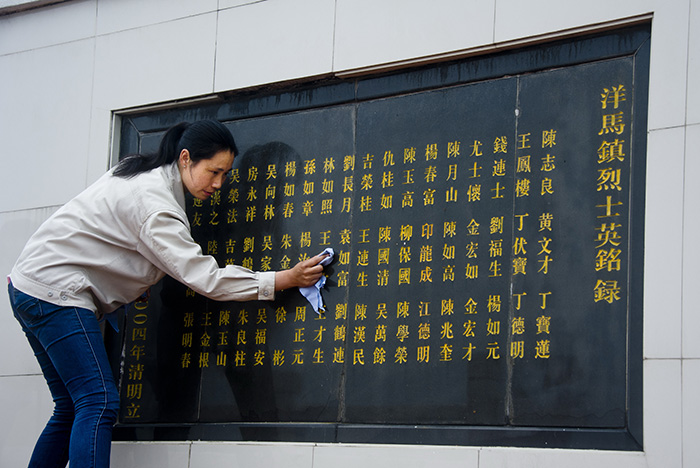 洋馬鎮烈士英銘録
陳志良 黄文才 丁寶蓮
王鳳樓 丁伏寶 丁德明
錢連士 劉福生 楊如元
尤士懷 金宏如 金宏才
陳月山 陳如高 陳兆奎
楊春富 印龍成 江德明
陳玉高 柳保國 陳學榮
仇桂如 陳國清 吳萬餘
吉榮桂 王連生 陳漢民
劉長月 袁如富 劉鶴連
林如照 王 才生
孫如章 楊 周正元
楊如春 朱金 徐彬
吳向林 吳家 吳福安
房永祥 劉鶴 朱良柱
吳榮法 吉 陳玉山
漢之 陸 王金根
友 張明春
〇四年清明立